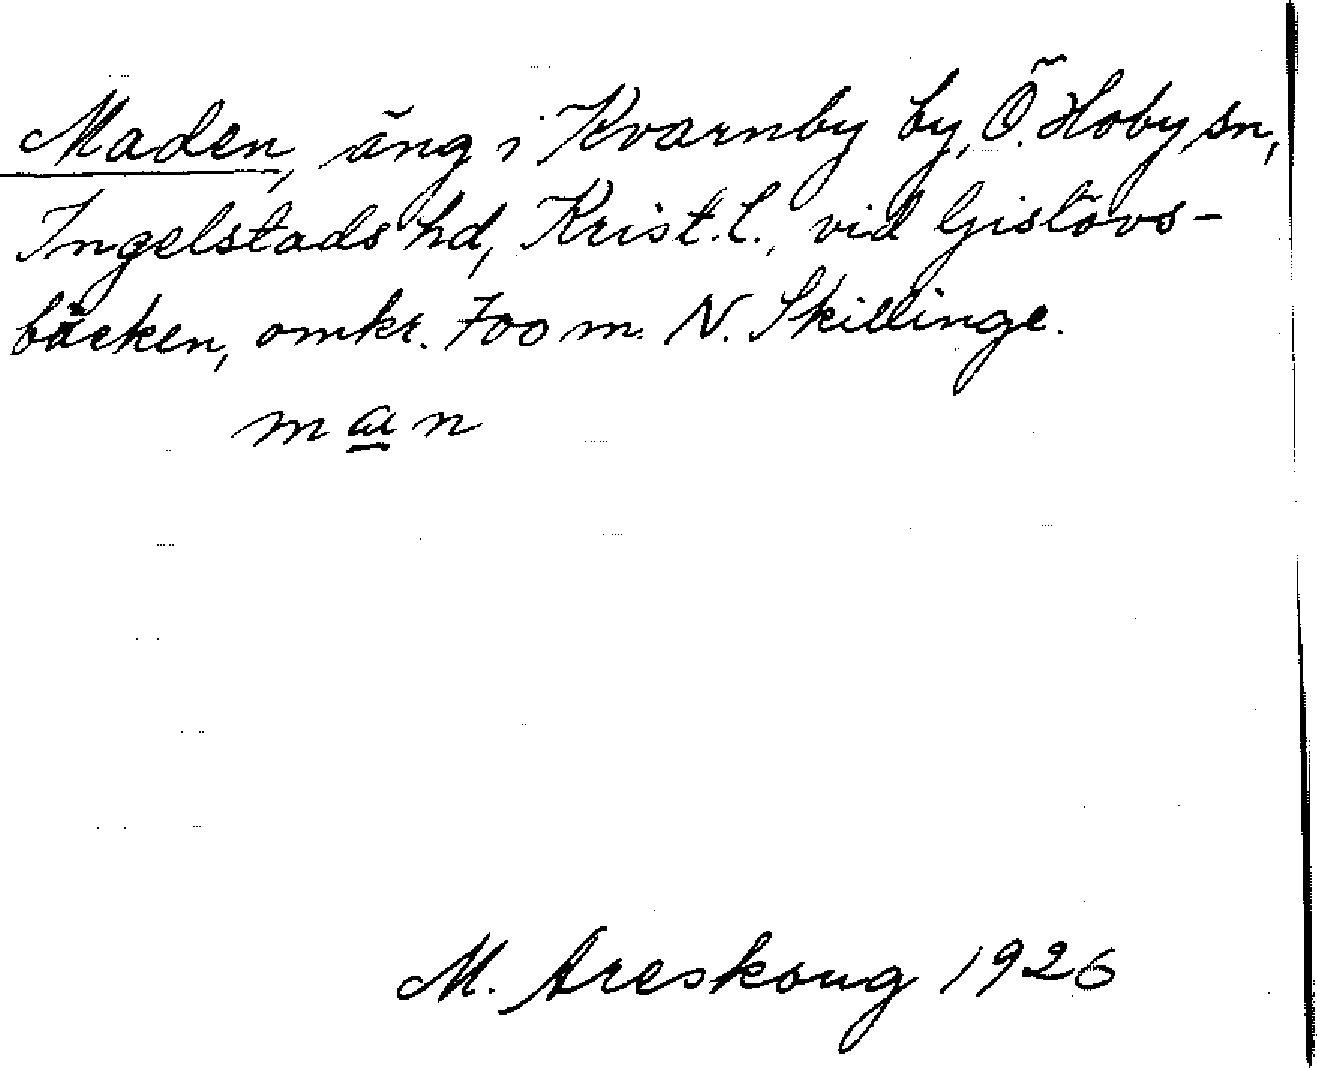 Maden, äng i Kvarnby by, Ö. Hoby sn,
Ingelstads hd, Krist. l., vid Gislövs-
bäcken, omkr. 700 m. N. Skillinge.
man
M. Areskoug 1926